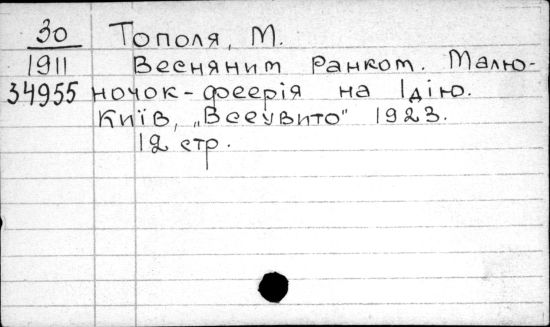 30 Тополя, М.
1911 Весняним ранком. Малю-
34955 ночок-феєрія на 1 дію.
Київ, „Всеувито" 1923.
12 стр.